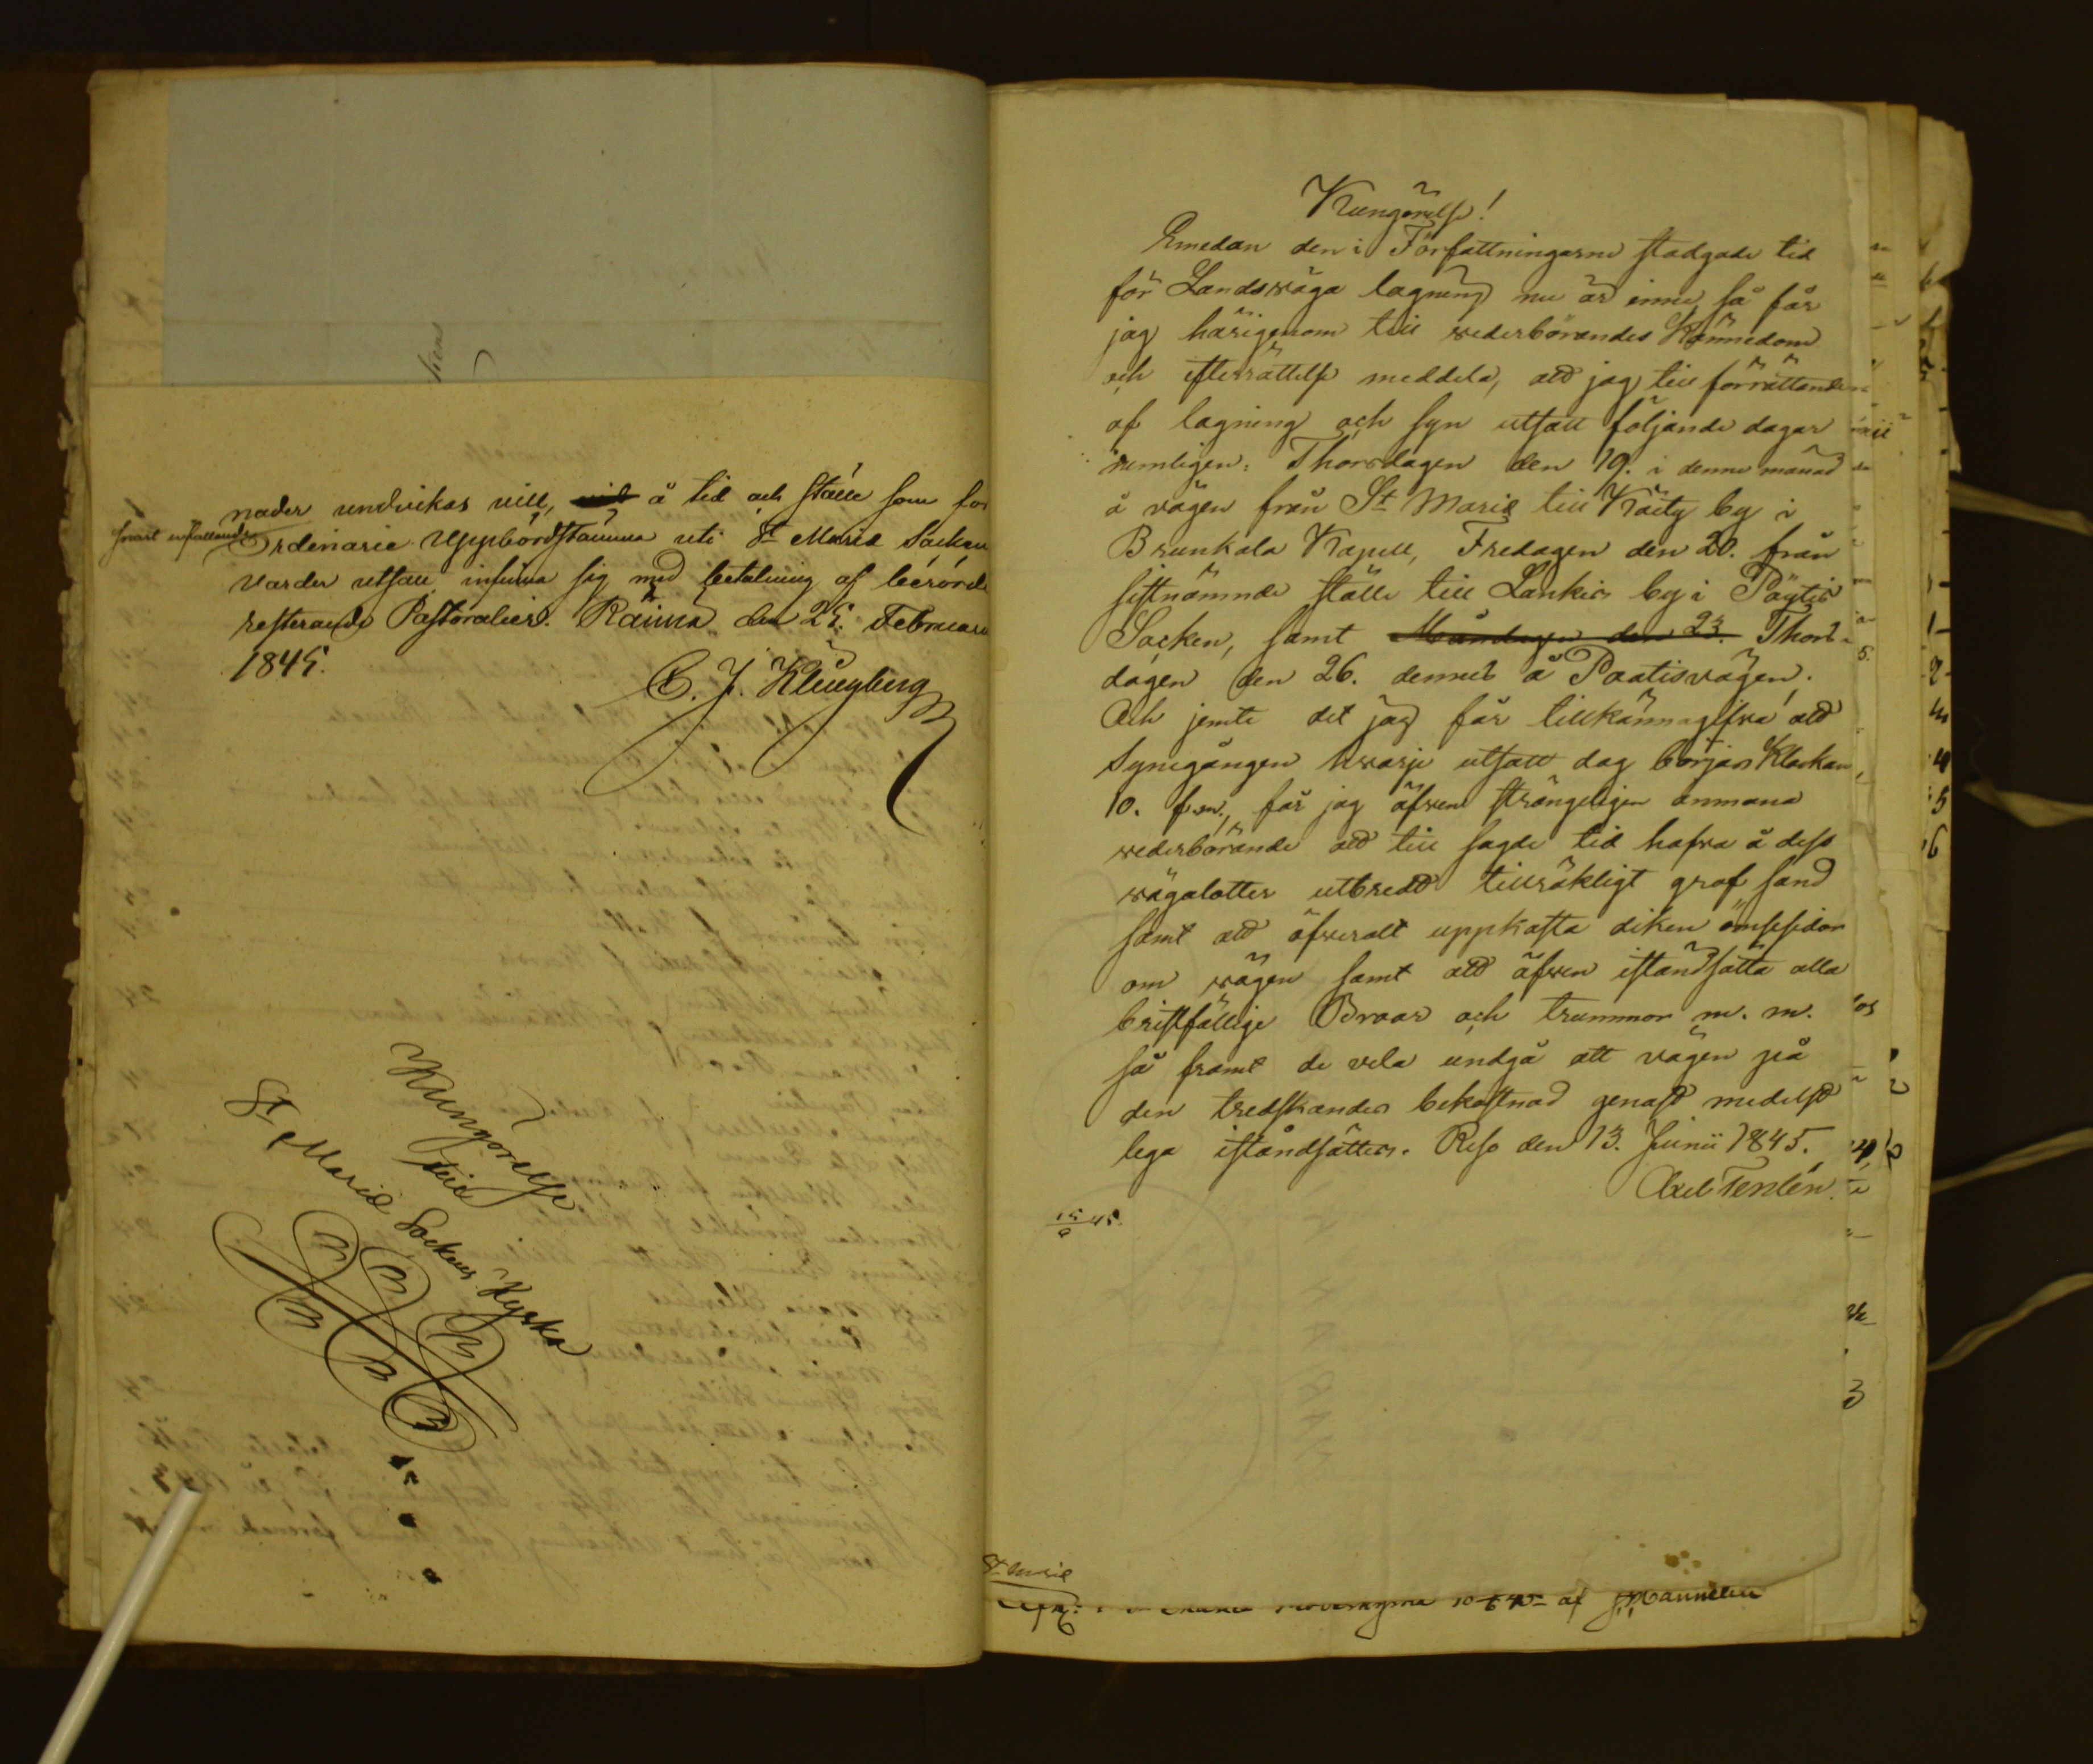 nader undvikas vill, å tid och ställe som för
snart infallande
Ordinarie Uppbördstämma uti St Mariæ Socken
varder utsatt infinna sig med betalning af berörde
resterande Pastoralier. Räimä den 25. Februari
1845.
C. J. Klingberg
Kungörelse
till
St Mariæ Sockens Kyrka
Kungörelse!
Emedan den i Författningarne stadgade tid
för Landsväga lagning nu är inne, så får
jag härigenom till wederbörandes Kännedom
och efterrättelse meddela, att jag till förrättande
af lagning och syn utsatt följande dagar
nemligen: Thorsdagen den 19. i denne månad
å vägen från St Mariæ till Käity by i
Brunkala Kapell, Fredagen den 20. från
sistnämnde ställe till Lankis by i Pöytis
Socken, samt Måndagen den 23. Thors-
dagen den 26. dennes å Paatisvägen.
Och jemte det jag får tillkännagifva att
Synegången hvarje utsatt dag börjas Klockan
10. f.m., får jag äfven strängeligen anmana
wederbörande att till sagde tid hafva å dess
vägalotter utbredt tillräkligt grof sand
samt att öfveralt uppkasta diken ömsesidor
om vägen samt att äfven iståndsätta alla
bristfällige Broar och trummor m. m.
så framt de vela undgå att vägen på
den tredskandes bekostnad genast medelst
lega iståndsättes. Reso den 13. Junii 1845.
Axel Tenlén.
St Mariæ